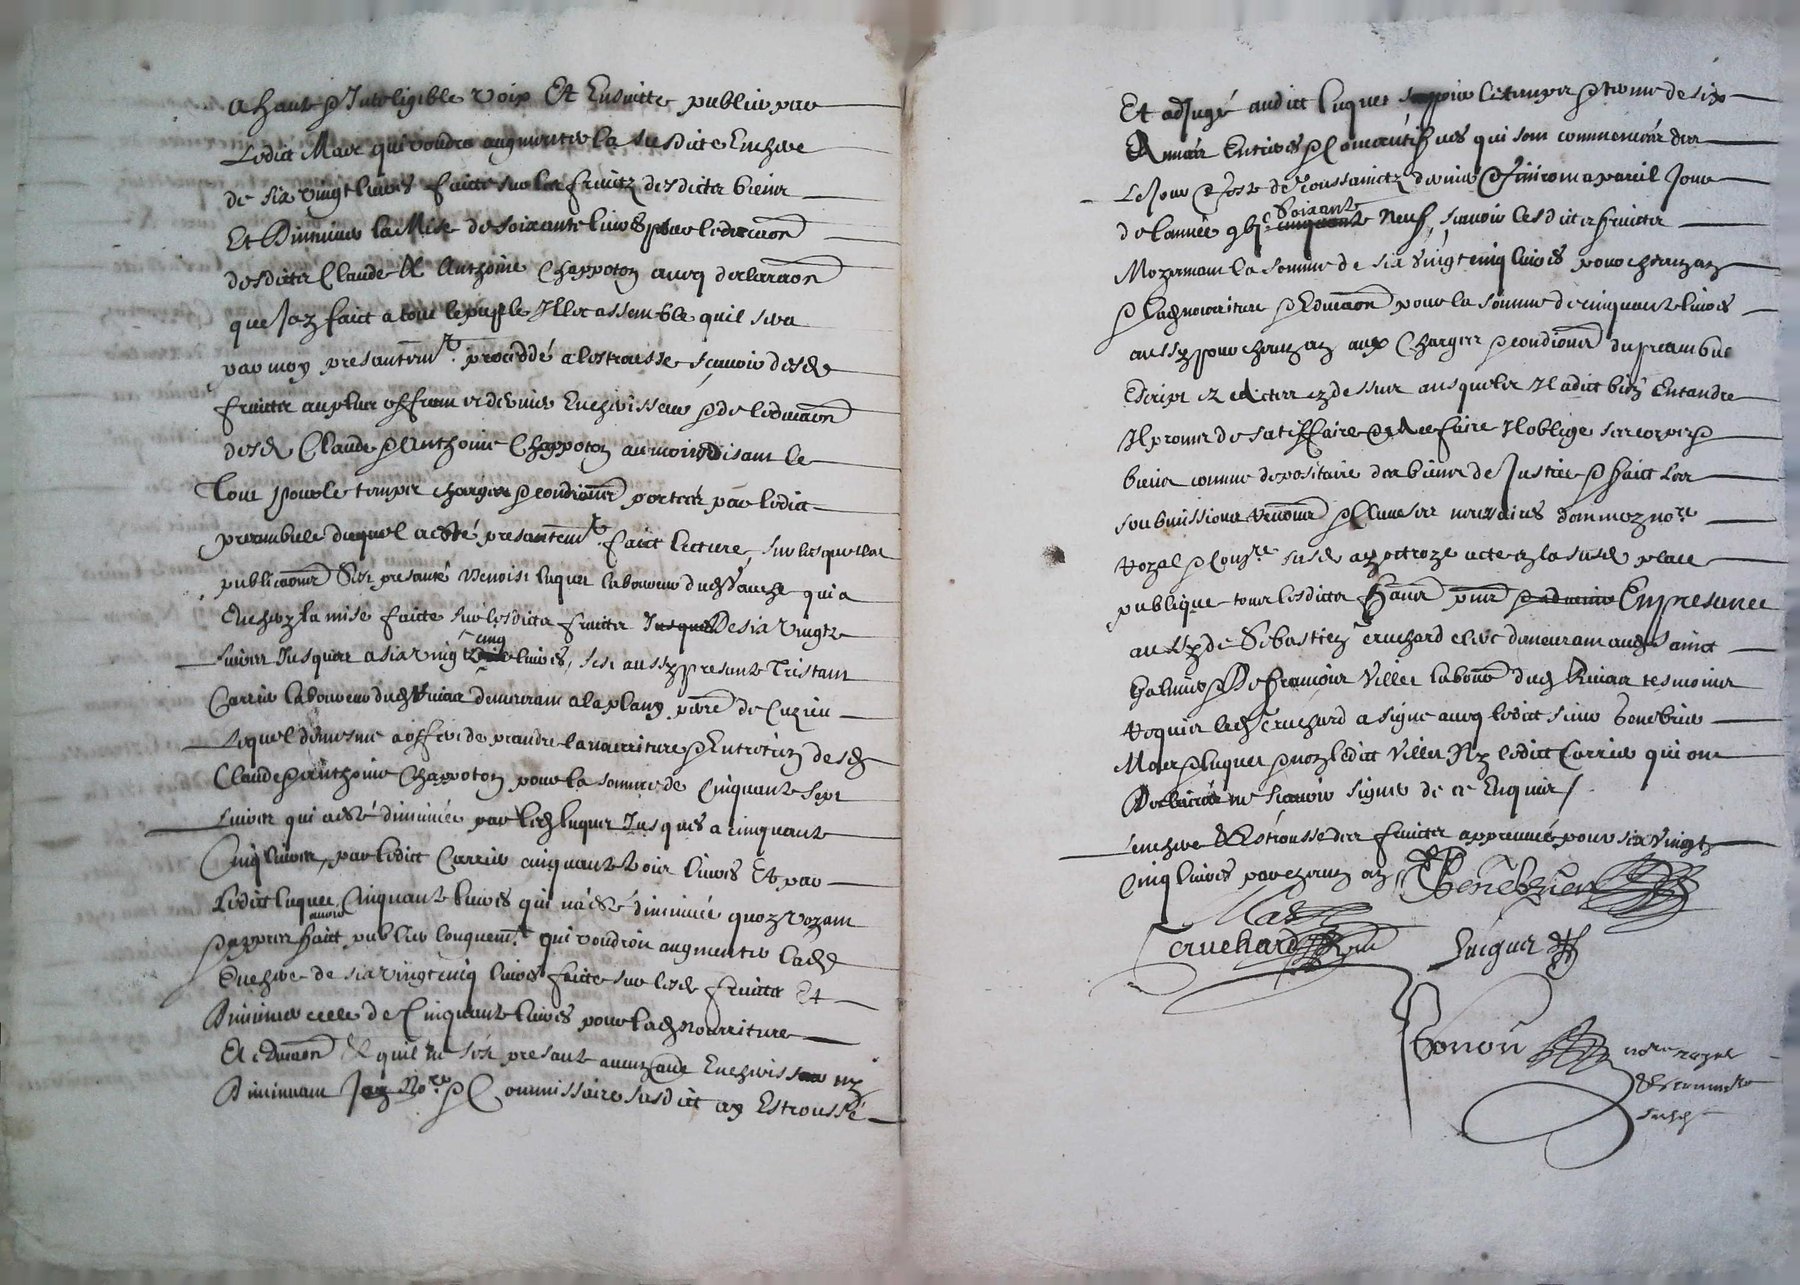 a haute & Inteligible voix Et Ensuitte publier par
Ledict Mace qui voudra augmenter la susdicte Enchere
de six vingt livres faicte sur les fruictz desdictz biens
Et Diminuer la Mise de soixante livres pour leducaon
desdictz Claude & Anthoine Chappoton avecq declaraon
que Jay faict a tout le puple Illec assemble quil sera
par moy presantemt. procédé a lestrousse scavoir desd
fruictz au plus offrant et dernier Encherisseur & de leducaon
desd Claude & Anthoine Chappoton au moins disant le
Tout pour le temps charges & condiones portées par ledict
preambule duquel a esté presantemt. faict lecture, sur lesquelles
publicaones Sest presanté Benoist luquet laboureur dud qui a
Enchery la mise faicte sur lesdictz fruictz Jusques De six vingtz
livres Jusques a six vingt cinq livres, sest aussy presanté Tristant
Carrier laboureur dud demeurant a la plany parre de Cuzieu
Lequel de mesme a offert de prandre la nourriture & Entretien desd
Claude & Anthoine Chappoton pour la somme de Cinquante sept
Livres qui a esté diminuée par led luquet Jusques a cinquante
Cinq livres, par ledict Carrier cinquante trois livres Et par
Ledict luquet Cinquante livres qui na esté diminuée quoy voyant
& appres avoir faict publier longuemt. qui voudroit augmenter lad
Enchere de six vingt cinq livres faicte sur lesd fruictz Et
Diminuer celle de Cinquante livres pour lad nourriture
Et educaon & quil ne sest presanté aucung aultre Encherisseur ny
Diminuant Jay Nore & Commissaire susdict ay Estroussé
Et adjugé audict luquet pour le temps & terme de six
Années Entieres & Consecutifves qui sont commencées des
Le Jour & feste de Toussainctz dernier & finiront a pareil Jour
de lannée gbjc. cinquante soixante Neuf, scavoir lesdictz fruictz
Moyennant la somme de six vingt cinq livres pour chung an
& lad nourriture & Educaon pour la somme de cinquante livres
aussy pour chung an aux Charges & condiones du preambule
Escript et actes cy dessus ausquelles Il a dict bien Entandre
Il promet de satisffaire & de ce faire Il oblige ses corps &
biens comme depositaire des biens de Justice & faict les
soubmissions renones & clauses necessaires dont moy nore.
Royal & Comre susd ay octroyé acte en la susd place
publique tous lesdictz Empresence
aussy de Sebastien Cruchard clerc demeurant aud Sainct
Galmier & De francois Viller laboure dud tesmoins
Requis led Cruchard a signé avecq ledict sieur Benebvier
Mace & luquet & non ledict Viller Ny ledict Carrier qui ont
Declairé ne scavoir signer de ce Enquis /
Lenchere & Estrousse des fruictz appreuvée pour six vingt
Cinq livres par chung an,
Benebvier
Mace
Cruchard Luquet
nore royal
& comre
susd